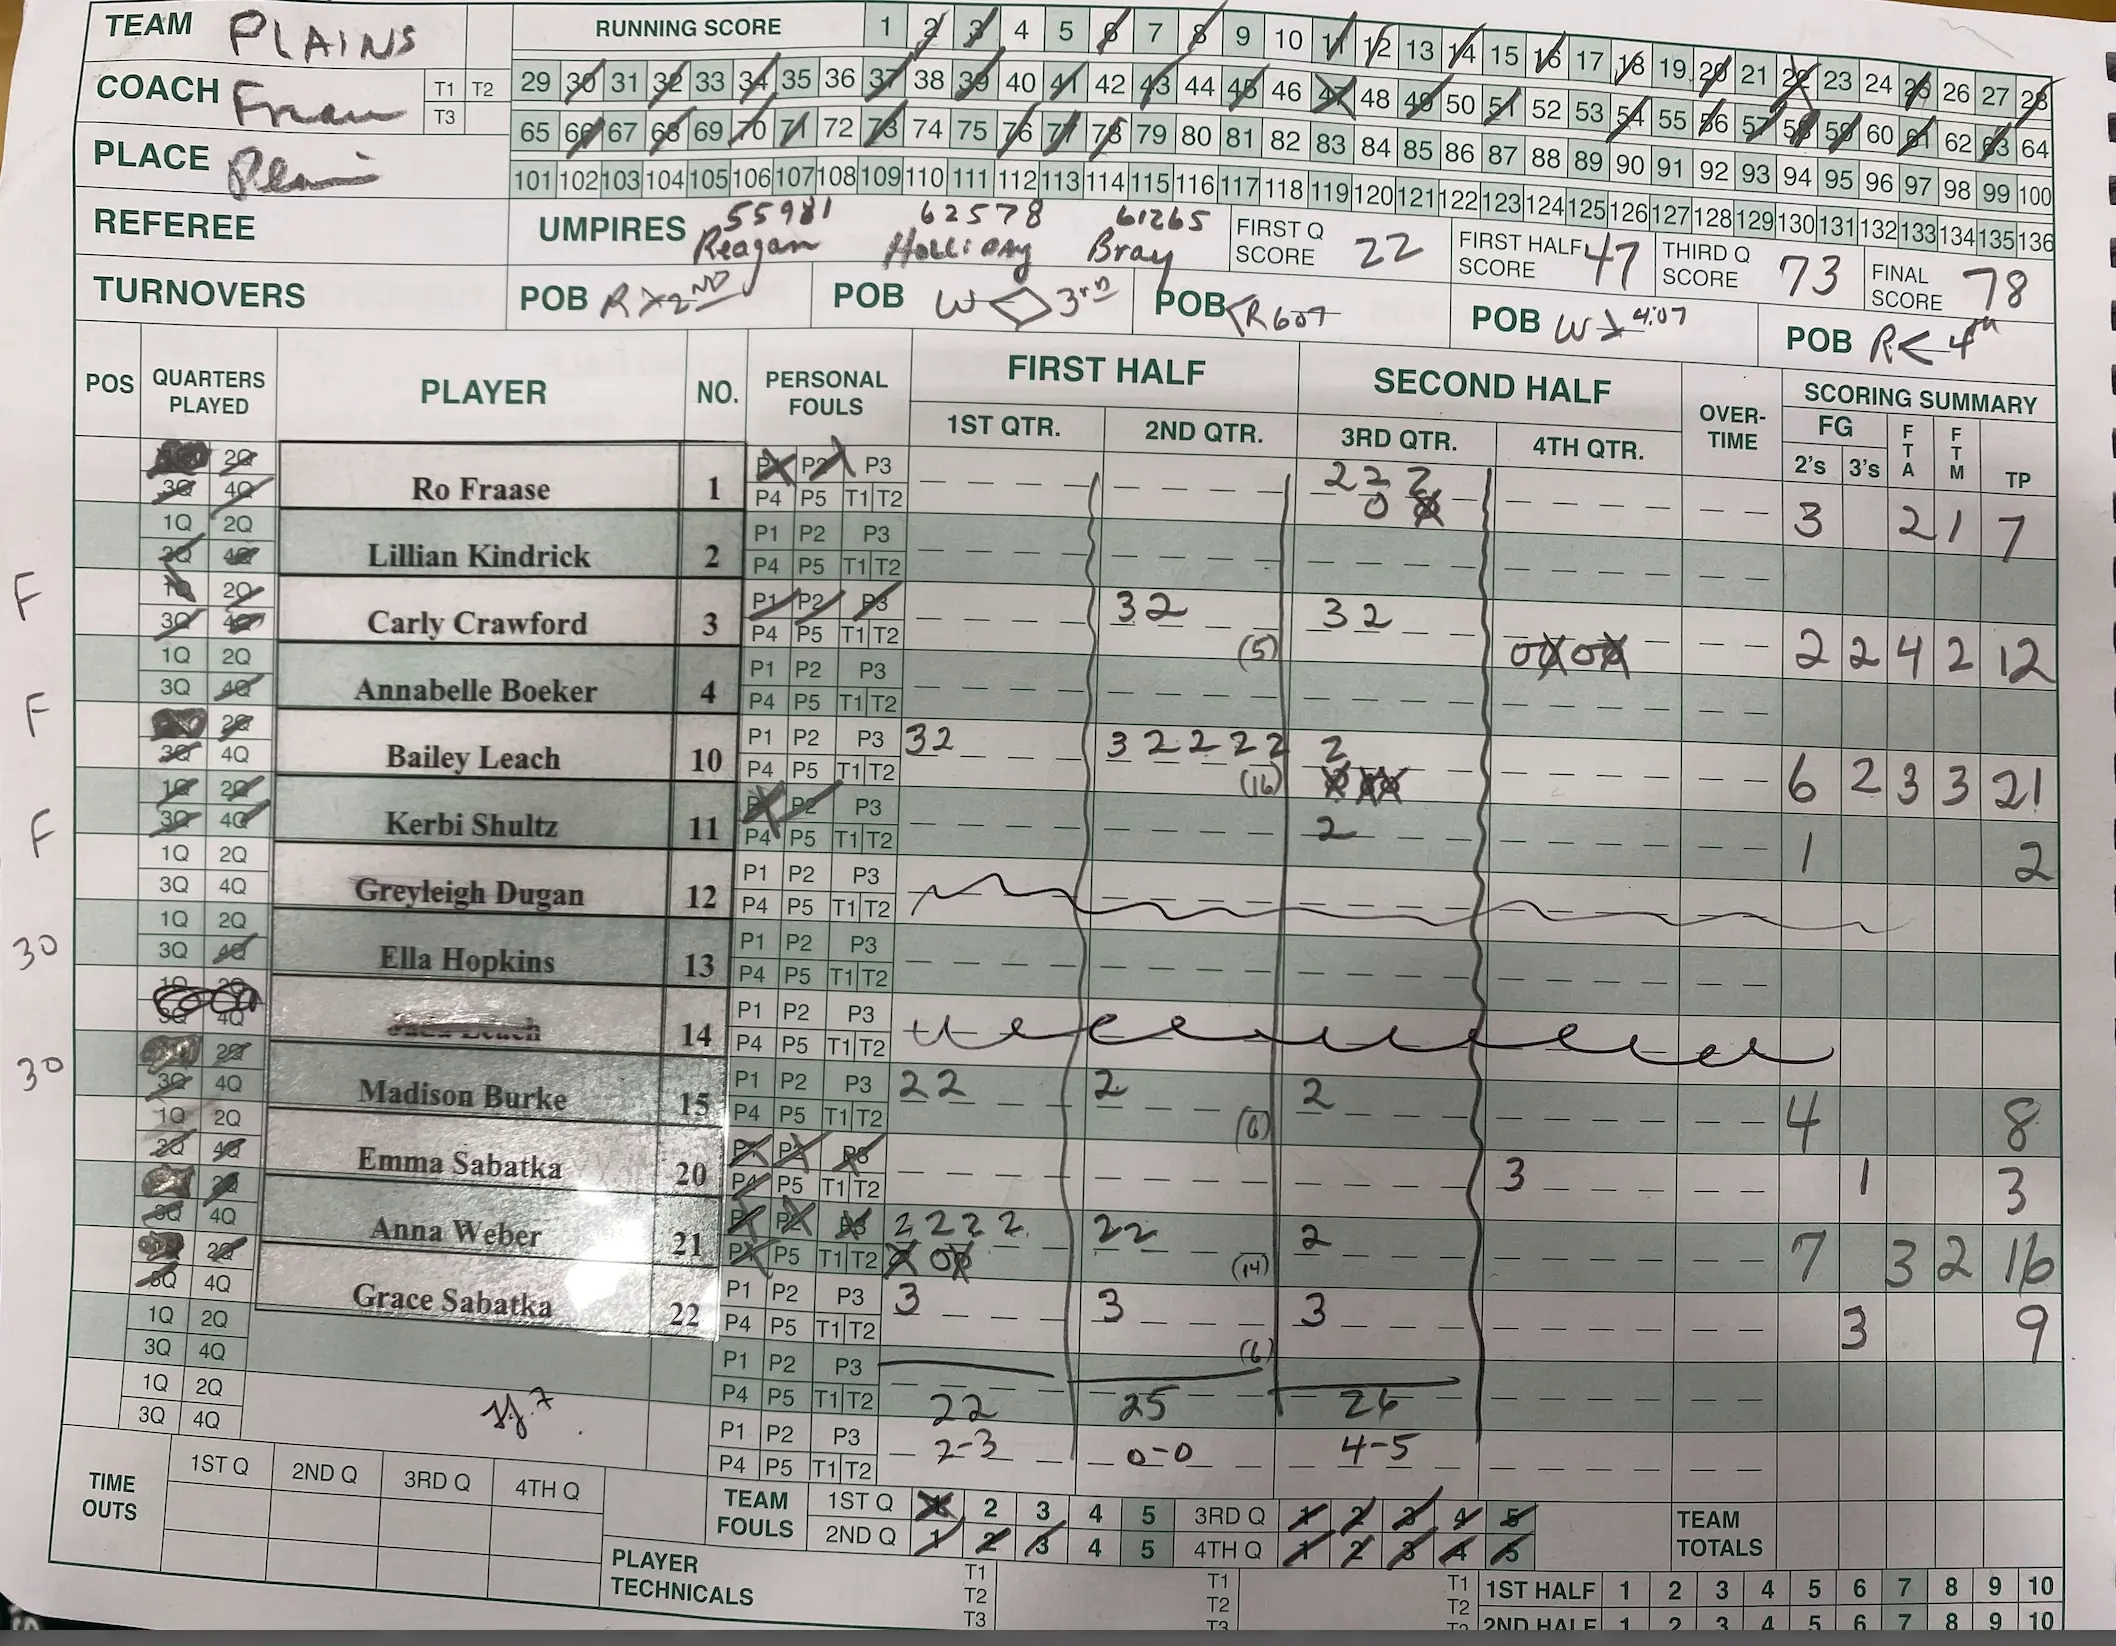 TEAM PLAINS RUNNING SCORE 1 2 3 4 5 6 7 8 9 10 11 12 13 14 15 16 17 18 19 20 21 22 23 24 25 26 27 28
COACH T1 T2 T3 29 30 31 32 33 34 35 36 37 38 39 40 41 42 43 44 45 46 47 48 49 50 51 52 53 54 55 56 57 58 59 60 61 62 63 64
65 66 67 68 69 70 71 72 73 74 75 76 77 78 79 80 81 82 83 84 85 86 87 88 89 90 91 92 93 94 95 96 97 98 99 100
PLACE
101 102 103 104 105 106 107 108 109 110 111 112 113 114 115 116 117 118 119 120 121 122 123 124 125 126 127 128 129 130 131 132 133 134 135 136
REFEREE UMPIRES 55981 Reagan 62578 Holliday 61265 Bray FIRST Q SCORE 22 FIRST HALF SCORE 47 THIRD Q SCORE 73 FINAL SCORE 78
TURNOVERS POB R 2ND POB W 3rd POB R 607 POB W 4:07 POB R 4th
POS QUARTERS PLAYED PLAYER NO. PERSONAL FOULS FIRST HALF SECOND HALF OVER-TIME SCORING SUMMARY
1ST QTR. 2ND QTR. 3RD QTR. 4TH QTR. FG 2's 3's FTA FTM TP
2Q 3Q 4Q Ro Fraase 1 P1 P2 P3 P4 P5 T1 T2 2 2 2 0 0 3 2 1 7
1Q 2Q 3Q 4Q Lillian Kindrick 2 P1 P2 P3 P4 P5 T1 T2
F 1Q 2Q 3Q 4Q Carly Crawford 3 P1 P2 P3 P4 P5 T1 T2 3 2 (5) 3 2 0 0 0 0 2 2 4 2 12
1Q 2Q 3Q 4Q Annabelle Boeker 4 P1 P2 P3 P4 P5 T1 T2
F 2Q 3Q 4Q Bailey Leach 10 P1 P2 P3 P4 P5 T1 T2 3 2 3 2 2 2 2 (16) 2 0 0 0 6 2 3 3 21
F 1Q 2Q 3Q 4Q Kerbi Shultz 11 P2 P3 P4 P5 T1 T2 2 1 2
1Q 2Q 3Q 4Q Greyleigh Dugan 12 P1 P2 P3 P4 P5 T1 T2
30 1Q 2Q 3Q 4Q Ella Hopkins 13 P1 P2 P3 P4 P5 T1 T2
1Q 2Q 3Q 4Q Leach 14 P1 P2 P3 P4 P5 T1 T2
30 2Q 3Q 4Q Madison Burke 15 P1 P2 P3 P4 P5 T1 T2 2 2 2 (6) 2 4 8
1Q 2Q 3Q 4Q Emma Sabatka 20 P1 P2 P3 P4 P5 T1 T2 3 1 3
2Q 3Q 4Q Anna Weber 21 P1 P2 P3 P4 P5 T1 T2 2 2 2 2 0 0 0 2 2 (14) 2 7 3 2 16
2Q 3Q 4Q Grace Sabatka 22 P1 P2 P3 P4 P5 T1 T2 3 3 (6) 3 3 9
1Q 2Q 3Q 4Q P1 P2 P3 P4 P5 T1 T2 22 25 26
1Q 2Q 3Q 4Q P1 P2 P3 P4 P5 T1 T2 2-3 0-0 4-5
TIME OUTS 1ST Q 2ND Q 3RD Q 4TH Q
TEAM FOULS 1ST Q 1 2 3 4 5 3RD Q 1 2 3 4 5 TEAM TOTALS
2ND Q 1 2 3 4 5 4TH Q 1 2 3 4 5
PLAYER TECHNICALS T1 T2 T3 T1 T2 T3 T1 T2
1ST HALF 1 2 3 4 5 6 7 8 9 10
2ND HALF 1 2 3 4 5 6 7 8 9 10